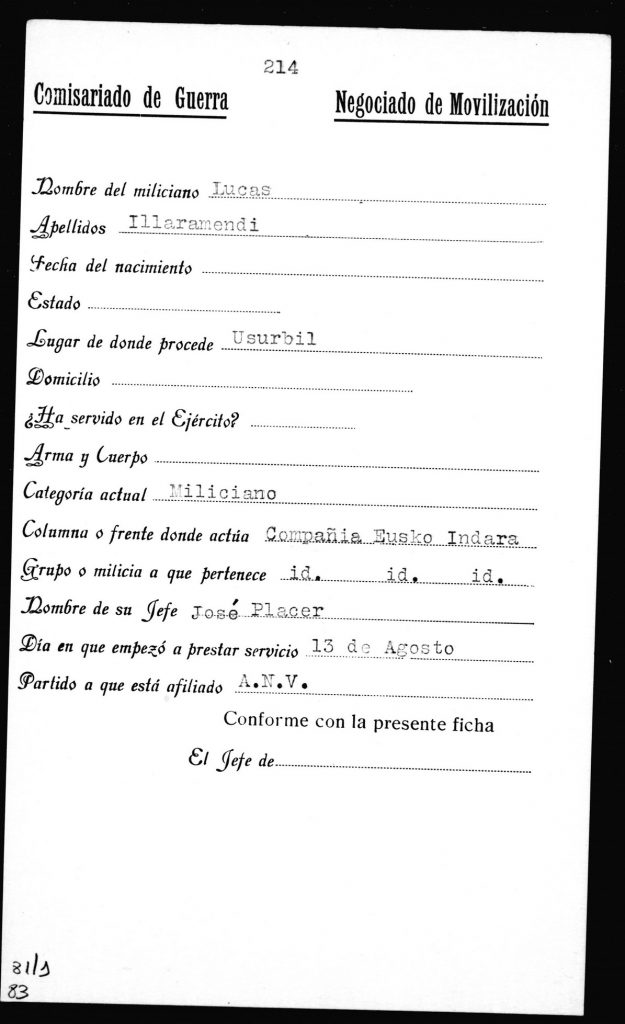 214
Comisariado de Guerra Negociado de Movilización
Nombre del miliciano Lucas
Apellidos Illaramendi
Fecha del nacimiento
Estado
Lugar de donde procede Usurbil
Domicilio
¿Ha servido en el Ejército?
Arma y Cuerpo
Categoría actual Miliciano
Columna o frente donde actúa Compañia Eusko Indara
Grupo o milicia a que pertenece id. id. id.
Nombre de su Jefe José Placer
Día en que empezó a prestar servicio 13 de Agosto
Partido a que está afiliado A.N.V.
Conforme con la presente ficha
El Jefe de
81/1
83